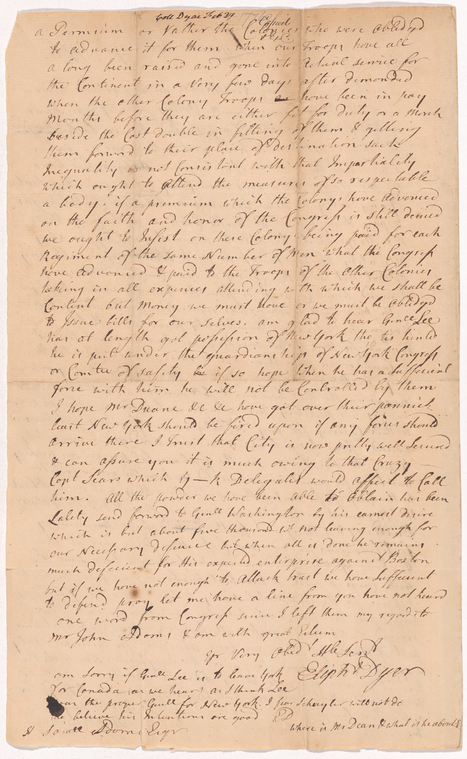 Coll Dyar Feb 29
a Permium or Rather the Colonies who were obledgd
to advance it for them. when our Troops have all
a long been raised and gone into actual service for
the Continent in a Very few days after demanded
when the other Colony Troops have been in pay
Months before they are either fit for duty or a March
beside the Cost double in fitting of them & getting
them forward to their place of destination such
Inequality is not Consistent with that Impartiality
which ought to Attend the measures of so respectable
a body. if a premium which the Colonys have advanced
on the faith and honor of the Congress is still denied
we ought to Insist on these Colonys being paid for each
Regiment of the same Number of Men what the Congress
have advanced & paid to the Troops of the other Colonies
taking in all expences attending with which we shall be
Content but money we must have or we must be obledgd
to Issue bills for our selves. am glad to hear Genll Lee
has at length got possession of New York tho tis hinted
he is put under the guardianship of New York Congress
or Comtee of safety be it so I hope when he has a sufficient
force with him he will not be Controlled by them
I hope Mr Duane &c &c have got over their pannick
least New York should be fired upon if any force should
arrive there I trust that City is now pretty well secured
& can assure you it is much owing to that Crazy
Capt Sears which Y—k Delegates would affect to Call
him. All the powder we have been able to obtain has been
Lately send forward to Genll Washington by his earnest desire
which is but about five thousand wt not leaving enough for
our Necessary defence but when all is done he remains
much deficient for his expected enterprise against Boston
but if we have not enough to Attack trust we have sufficient
to defend pray let me have a line from you have not heard
one word from Congress since I left them my regards to
Mr John Adams & am with great esteem
Yr Very Obedt Hble Servt
Elipht Dyer
am sorry if Genll Lee is to leave York
for Canada as we hear as I think Lee
the proper Genll for New York I fear Schuyler will not do
believe his Intentions are good
where is Mr Dean & what is he about
Samll Adams Esqr